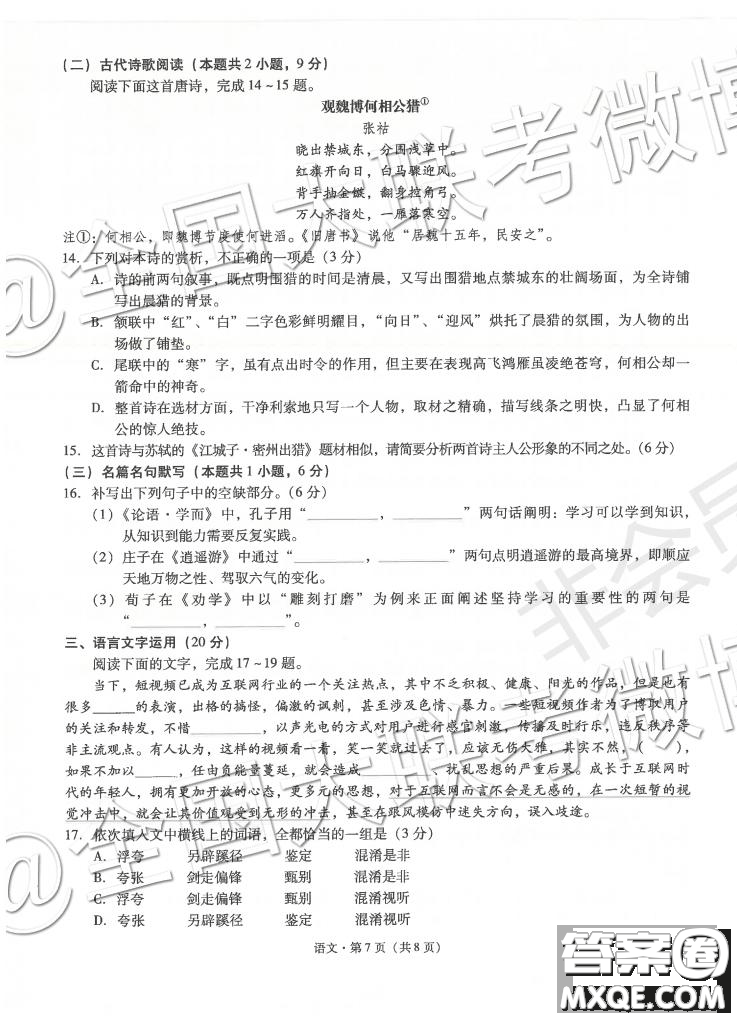 (二)古代诗歌阅读(本题共2小题,9分)
阅读下面这首唐诗,完成14~15题。
观魏博何相公猎①
张祜
晓出禁城东,分围浅草中。
红旗开向日,白马骤迎风。
背手抽金镞,翻身控角弓。
万人齐指处,一雁落寒空。
注①:何相公,即魏博节度使何进滔。《旧唐书》说他“居魏十五年,民安之”。
14. 下列对本诗的赏析,不正确的一项是(3分)
A. 诗的前两句叙事,既点明围猎的时间是清晨,又写出围猎地点禁城东的壮阔场面,为全诗铺
写出晨猎的背景。
B. 颔联中“红”、“白”二字色彩鲜明耀目,“向日”、“迎风”烘托了晨猎的氛围,为人物的出
场做了铺垫。
C. 尾联中的“寒”字,虽有点出时令的作用,但主要在表现高飞鸿雁虽凌绝苍穹,何相公却一
箭命中的神奇。
D. 整首诗在选材方面,干净利索地只写一个人物,取材之精确,描写线条之明快,凸显了何相
公的惊人绝技。
15. 这首诗与苏轼的《江城子·密州出猎》题材相似,请简要分析两首诗主人公形象的不同之处。(6分)
(三)名篇名句默写(本题共1小题,6分)
16. 补写出下列句子中的空缺部分。(6分)
(1)《论语·学而》中,孔子用“________,________”两句话阐明:学习可以学到知识,
从知识到能力需要反复实践。
(2)庄子在《逍遥游》中通过“________,________”两句点明逍遥游的最高境界,即顺应
天地万物之性、驾驭六气的变化。
(3)荀子在《劝学》中以“雕刻打磨”为例来正面阐述坚持学习的重要性的两句是
“________,________”。
三、语言文字运用(20分)
阅读下面的文字,完成17~19题。
当下,短视频已成为互联网行业的一个关注热点,其中不乏积极、健康、阳光的作品,但是也有
很多______的表演,出格的搞怪,偏激的讽刺,甚至涉及色情、暴力。一些短视频作者为了博取用户
的关注和转发,不惜________,以声光电的方式对用户进行感官刺激,传播及时行乐、违反秩序等
非主流观点。有人认为,这样的视频看一看,笑一笑就过去了,应该无伤大雅,其实不然,(    ),
如果不加以______,任由负能量蔓延,就会造成________、扰乱思想的严重后果。成长于互联网时
代的年轻人,拥有更加开放的心态,更多元的思想,对于互联网而言不会是无感的,在一次短暂的视
觉冲击中,就会让其价值观受到无形的冲击,甚至在跟风模仿中迷失方向,误入歧途。
17. 依次填入文中横线上的词语,全都恰当的一组是(3分)
A. 浮夸 另辟蹊径 鉴定 混淆是非
B. 夸张 剑走偏锋 甄别 混淆是非
C. 浮夸 剑走偏锋 甄别 混淆视听
D. 夸张 另辟蹊径 鉴定 混淆视听
语文·第7页(共8页)
@全国大联考微博
非会员
@全国大联考微博
答案圈
MXQE.COM